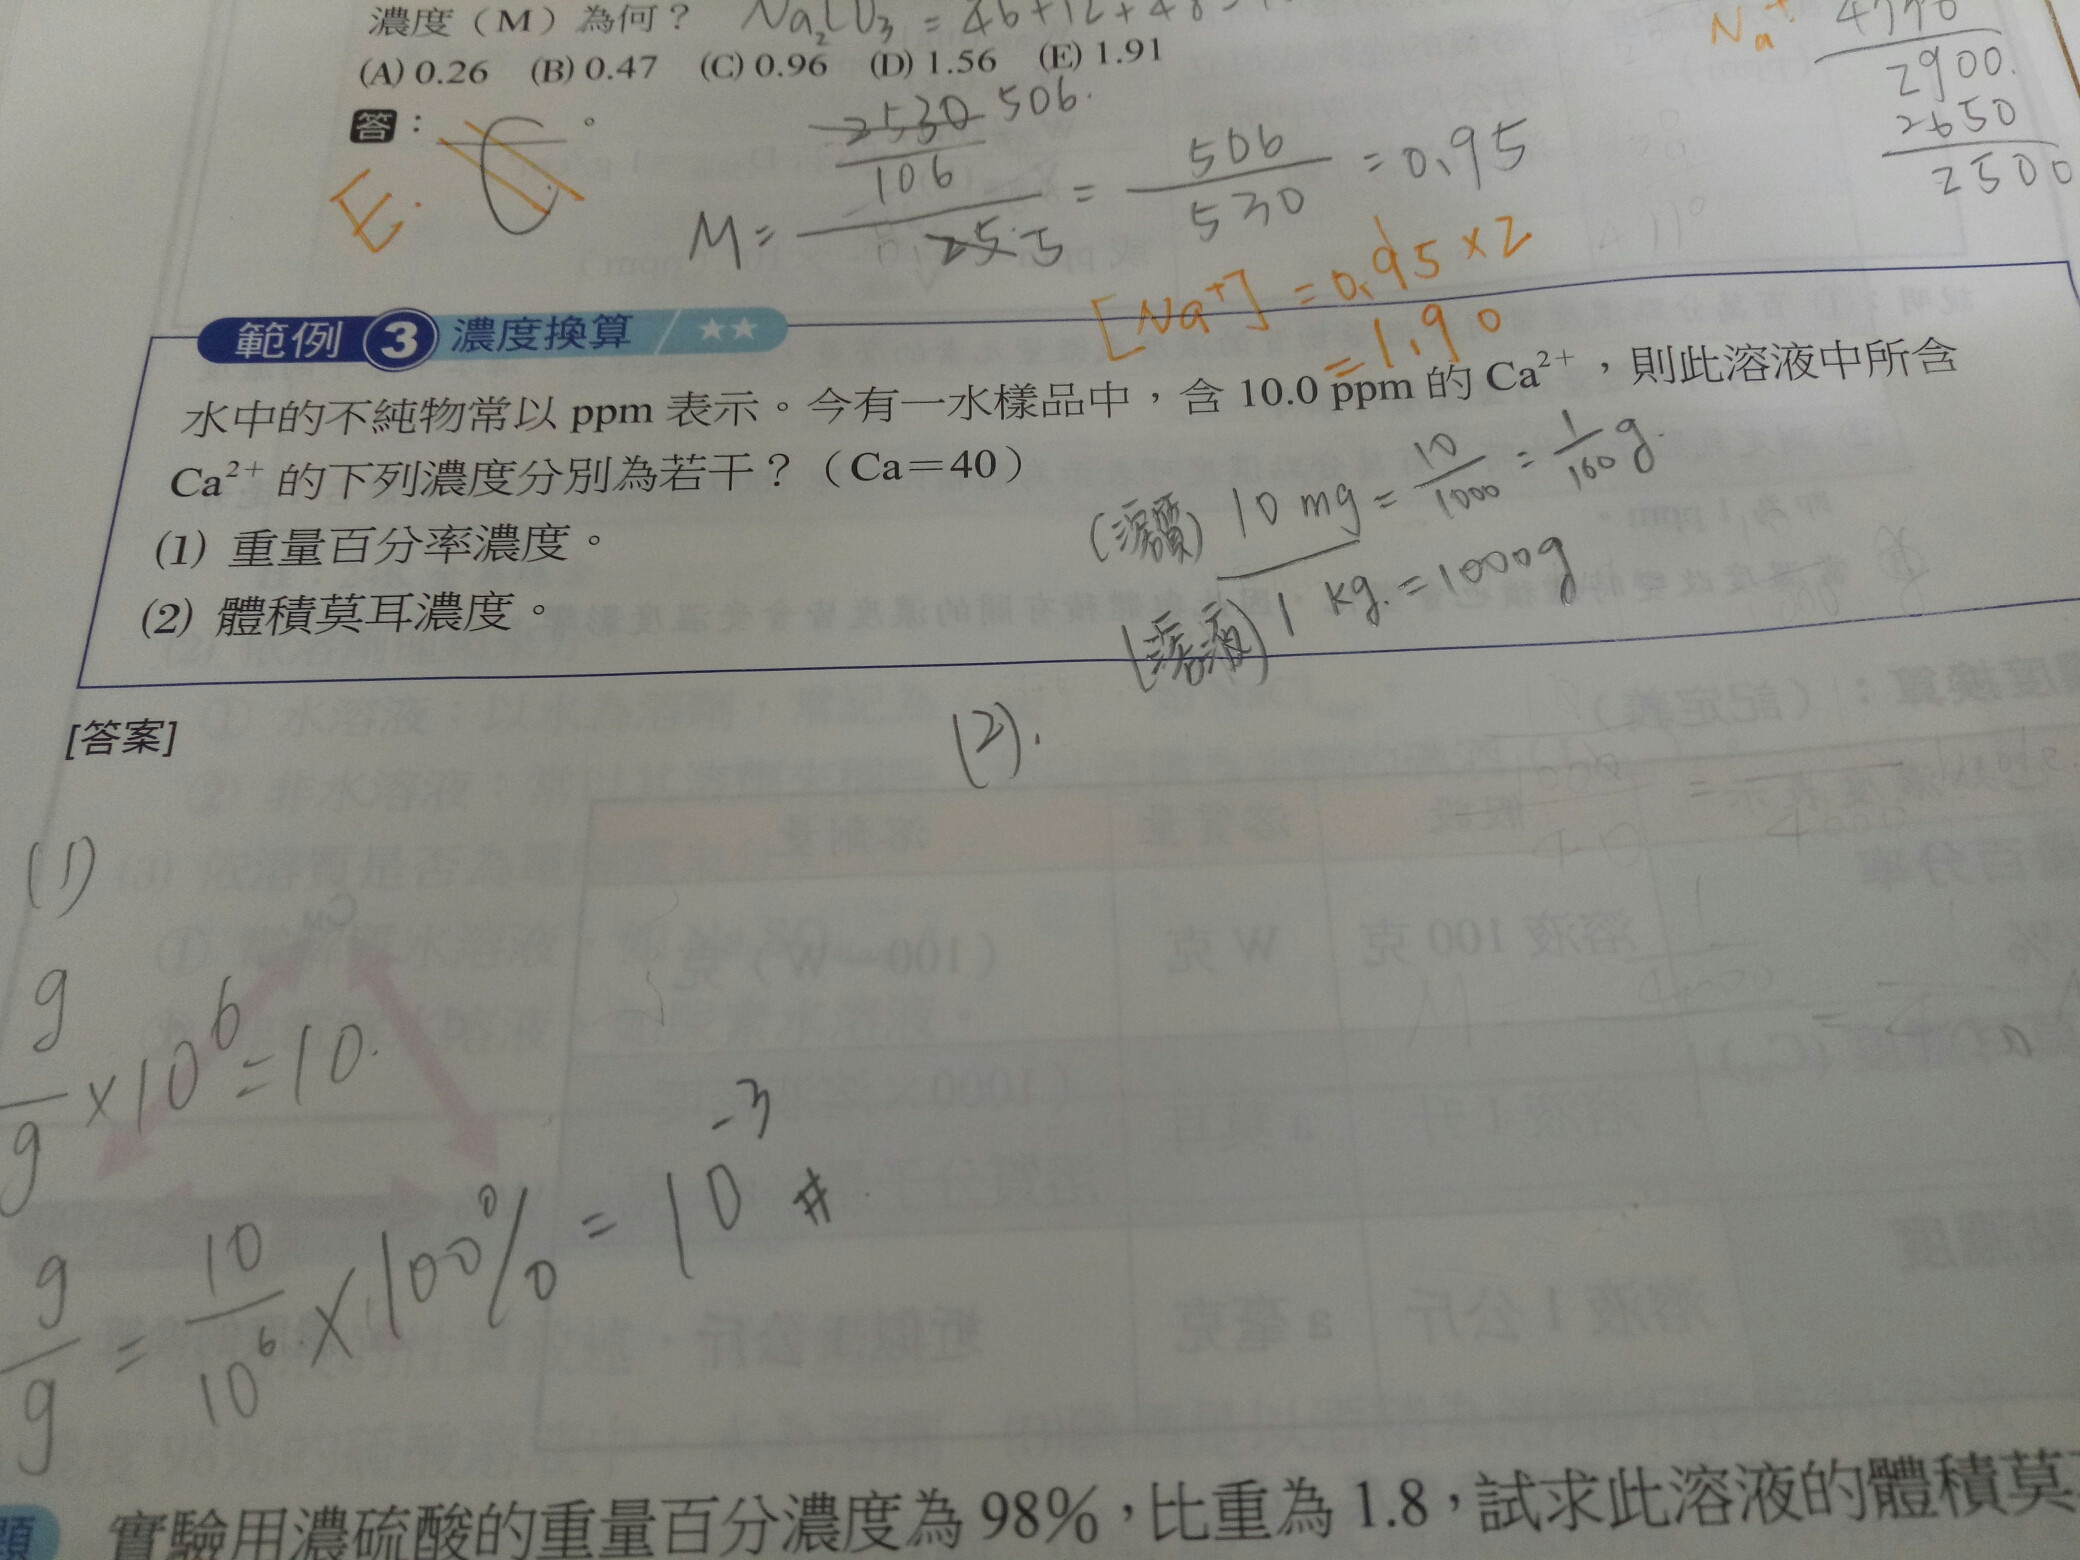 濃度（M）為何？ Na₂CO₃ = 46+12+48
(A) 0.26 (B) 0.47 (C) 0.96 (D) 1.56 (E) 1.91
答： C。
E.
2530 506.
106
M = 25.5 = 506/530 = 0.95
[Na⁺] = 0.95×2
= 1.90
Na⁺
2900.
2650
2500
範例 3 濃度換算 ★★
水中的不純物常以 ppm 表示。今有一水樣品中，含 10.0 ppm 的 Ca²⁺，則此溶液中所含
Ca²⁺ 的下列濃度分別為若干？（Ca＝40）
(1) 重量百分率濃度。
(2) 體積莫耳濃度。
(溶質) 10 mg = 10/1000 = 1/100 g.
(溶液) 1 kg. = 1000g
[答案]
(2).
(1)
g/g ×10⁶ = 10.
g/g = 10/10⁶ × 100% = 10⁻³ #
題 實驗用濃硫酸的重量百分濃度為 98%，比重為 1.8，試求此溶液的體積莫